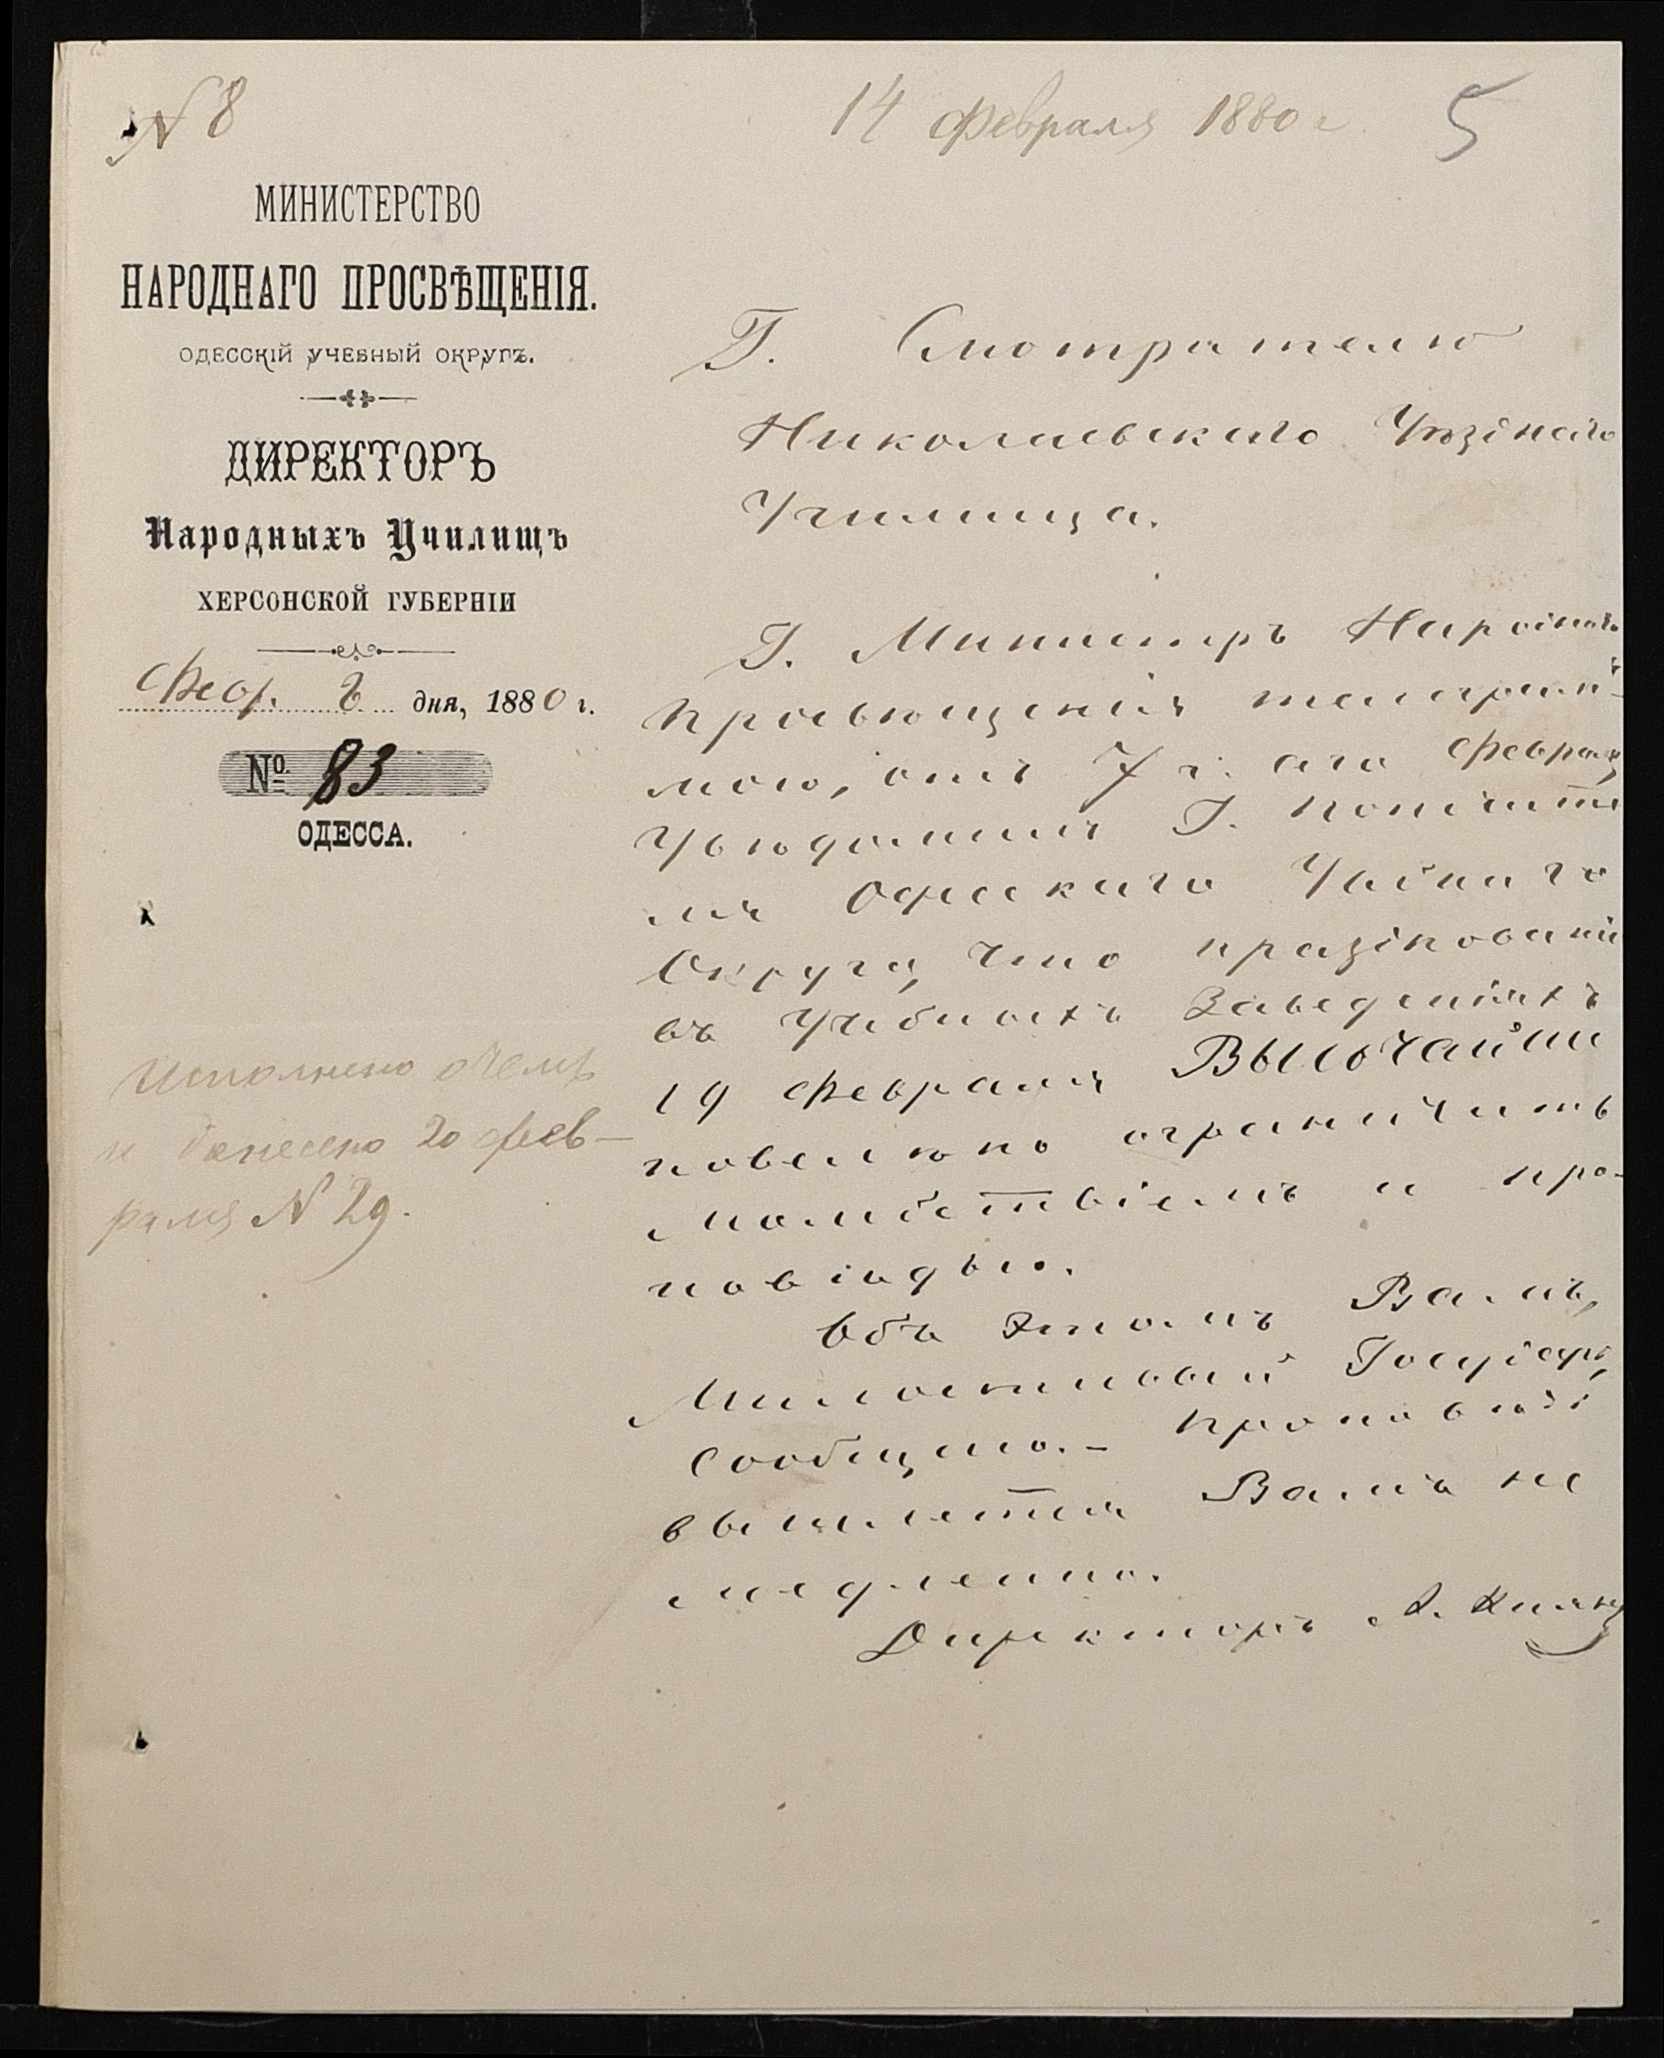 № 8
14 февраля 1880 г.
5
МИНИСТЕРСТВО
НАРОДНАГО ПРОСВѢЩЕНІЯ.
ОДЕССКІЙ УЧЕБНЫЙ ОКРУГЪ.
ДИРЕКТОРЪ
Народныхъ Училищъ
ХЕРСОНСКОЙ ГУБЕРНІИ
Февр. 8 дня, 1880 г.
№ 83
ОДЕССА.
Исполнено о чемъ
и донесено 20 фев-
раля № 29.
Г. Смотрителю
Николаевскаго Уѣзднаго
Училища.
Г. Министръ Народнаго
Просвѣщенія телеграм-
мою, отъ 7 сего Февраля,
увѣдомилъ Г. Попечите
ля Одесскаго Учебнаго
Округа, что празднованіе
въ учебныхъ заведеніяхъ
19 Февраля Высочайше
повелѣно ограничить
молебствіемъ и про-
повѣдью.
Объ этомъ Вамъ,
Милостивый Государь,
сообщаю. - Проповѣдь
вышлется Вамъ не
медленно.
Директоръ А.